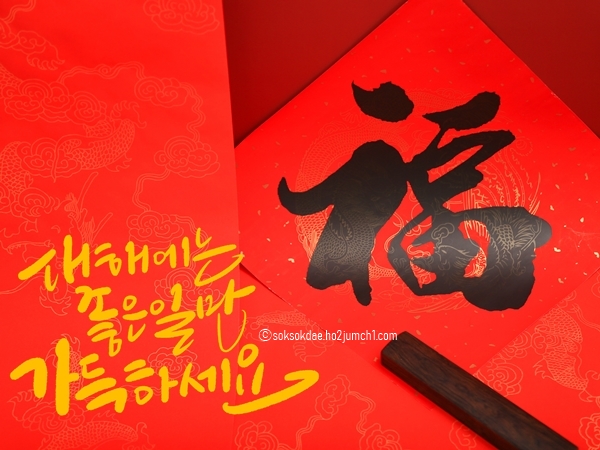 福
새해에는
좋은일만
가득하세요
©soksokdae.ho2jumch1.com